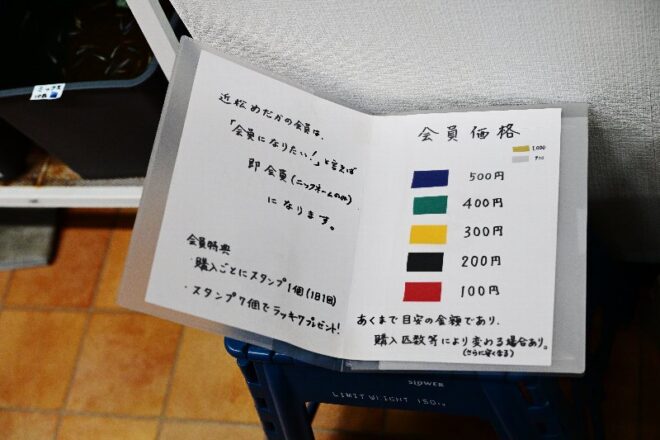 近松めだかの会員は、
「会員になりたい!」と言えば
即会員(ニックネームのみ)
になります。
会員特典
・購入ごとにスタンプ1個(1日1回)
・スタンプ7個でラッキープレゼント!
会員価格
1,000
700
500円
400円
300円
200円
100円
あくまで目安の金額であり、
購入匹数等により変わる場合あり。
(さらに安くなる)
SLOWER
LIMIT WEIGHT 150